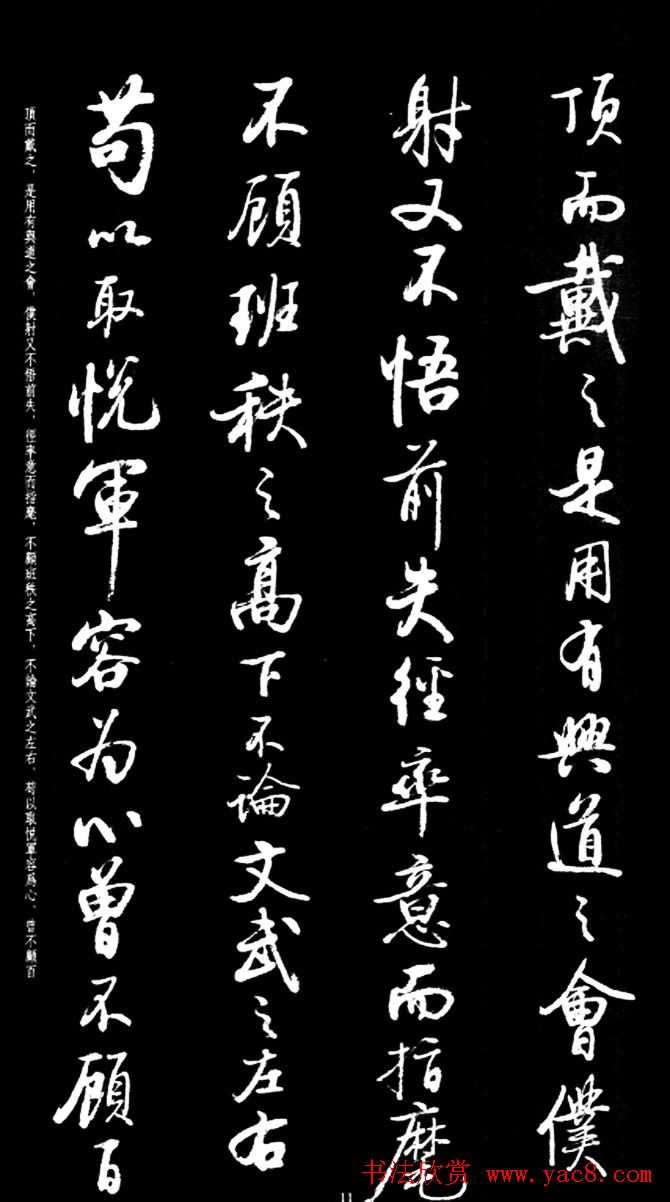 頂而戴之是用有興道之會僕
射又不悟前失徑率意而指麾
不顧班秩之高下不論文武之左右
苟以取悅軍容為心曾不顧百
頂而戴之，是用有興道之會。僕射又不悟前失，徑率意而指麾，不顧班秩之高下，不論文武之左右，苟以取悅軍容為心，曾不顧百
11
书法欣赏 www.yac8.com